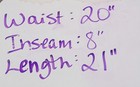 Waist: 20"
Inseam: 8"
Length: 21"